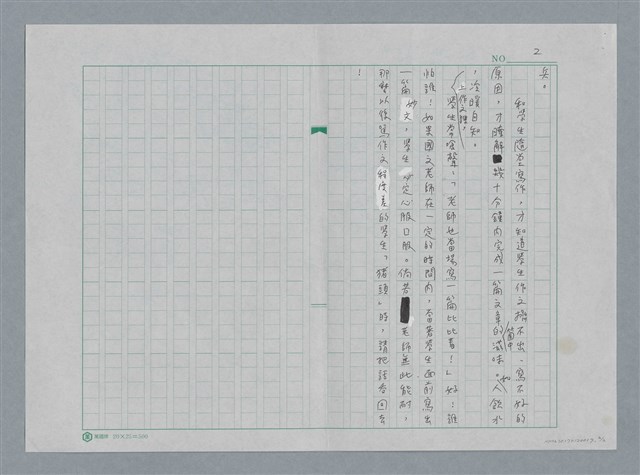 NO. 2
兵。
和學生隨堂寫作，才知道學生作文擠不出、寫不好的
原因，才瞭解幾十分鐘內完成一篇文章的箇中滋味。如人飲水
，冷暖自知。
上作文課，學生常會聲：「老師也當場寫一篇比比看！」好！誰
怕誰！如果國文老師在一定的時間內，當著學生面前寫出
一篇妙文，學生必定心服口服。倘若老師無此能耐，
那麼以後罵作文程度差的學生「豬頭」時，請把話吞回去
！